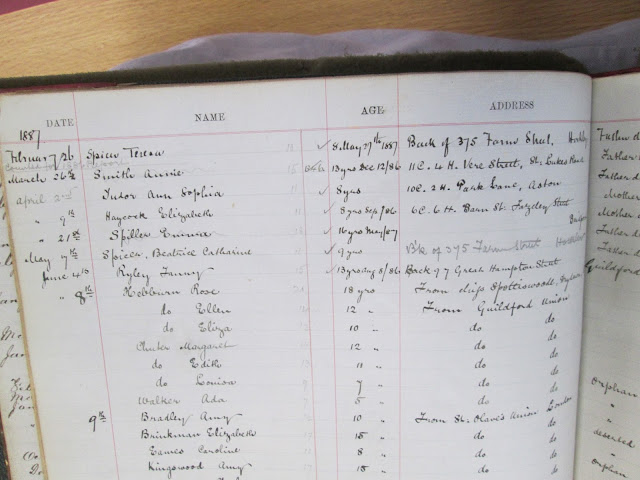 DATE NAME AGE ADDRESS
1887
February 26 Spicer Teresa 8 May 27th 1887 Back of 375 Farm Street, Hockley Father
March 26th Smith Annie 13 yrs Dec 12/86 11 C. 4 H. Vere Street, St. Lukes Father
April 2nd Tudor Ann Sophia 8 yrs 10 C. 2 H. Park Lane, Aston Father
" 9th Haycock Elizabeth 8 yrs Sep /86 6 C. 6 H. Barn St. Fazeley Street Mother
" 21st Spiller Emma 16 yrs May/87 Mother
May 7th Spicer, Beatrice Catharine 9 yrs Bk of 375 Farm Street Father
June 4th Ryley Fanny 13 yrs Aug 8/86 Back 97 Great Hampton Street Father
" 8th Hebburn Rose 18 yrs From ship Spottiswoode, Guildford
do Ellen 12 " From Guildford Union
do Eliza 10 " do do
Chuter Margaret 12 " do do
do Edith 11 " do do
do Louisa 9 " do do
Walker Ada 5 " do do orphan
9th Bradley Amy 10 " From St. Olave's Union London "
Brinkman Elizabeth 15 " do do "
Eames Caroline 8 " do do deserted
Kingswood Amy 15 " do do orphan